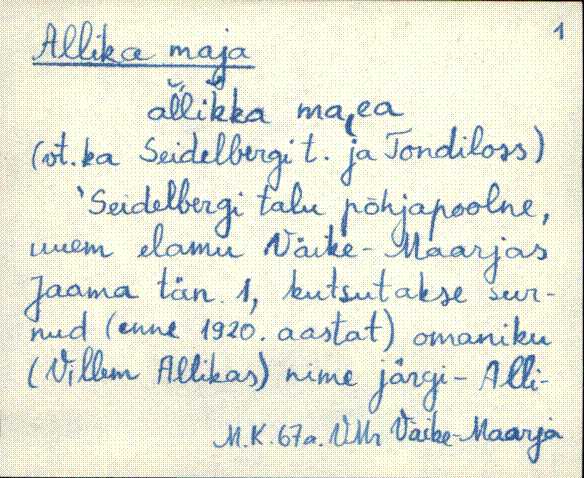 1
Allika maja
allikka maea
(vt. ka Seidelbergi t. ja Tondiloss)
'Seidelbergi talu põhjapoolne,
uuem elamu Väike-Maarjas
Jaama tän. 1, kutsutakse sur-
nud (enne 1920. aastat) omaniku
(Villem Allikas) nime järgi - Alli-
M.K. 67a. VMr Väike-Maarja